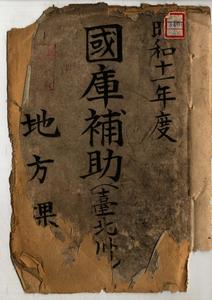 昭和十一年度
國庫補助(臺北州)
地方課